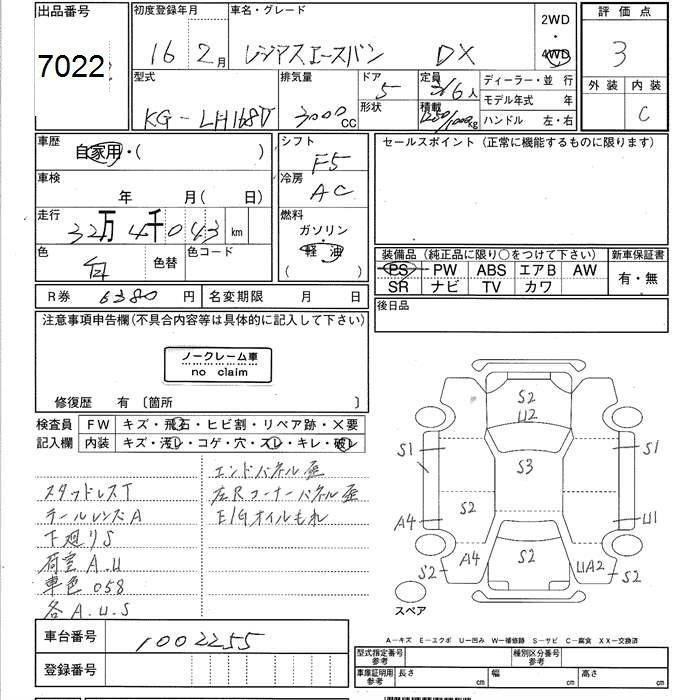 出品番号
7022
初度登録年月
16 2月
車名・グレード
レジアスエースバン DX
2WD
・
4WD
評価点
3
外装 内装
C
型式
KG-LH168V
排気量
3000cc
ドア
5
形状
定員
3/6人
積載
1250/1000kg
ディーラー・並 行
モデル年式 年
ハンドル 左・右
車歴
自家用・( )
車検
年 月( 日)
走行
32万4千043km
色
白
色替
色コード
シフト
F5
冷房
AC
燃料
ガソリン
・
軽 油
( )
セールスポイント(正常に機能するものに限ります)
装備品(純正品に限り○をつけて下さい)
PS PW ABS エアB AW
SR ナビ TV カワ
新車保証書
有・無
R券 6380円
名変期限 月 日
後日品
注意事項申告欄(不具合内容等は具体的に記入して下さい)
ノークレーム車
no claim
修復歴 有 〔箇所 〕
検査員
記入欄
FW キズ・飛石・ヒビ割・リペア跡・×要
内装 キズ・汚レ・コゲ・穴・スレ・キレ・破レ
スタッドレスT
テールレンズA
下廻りS
荷室A.U
車色058
各A.U.S
エンドパネル歪
左Rコーナーパネル歪
E/Gオイルもれ
S2
U2
S1
S1
S3
S2
A4
U1
A4
S2
UA2
S2
S2
スペア
A-キズ E-エクボ U-凹み W-補修跡 S-サビ C-腐食 XX-交換済
車台番号
1002255
登録番号
型式指定番号
参考
種別区分番号
参考
車庫証明用
参考
長さ cm
幅 cm
高さ cm